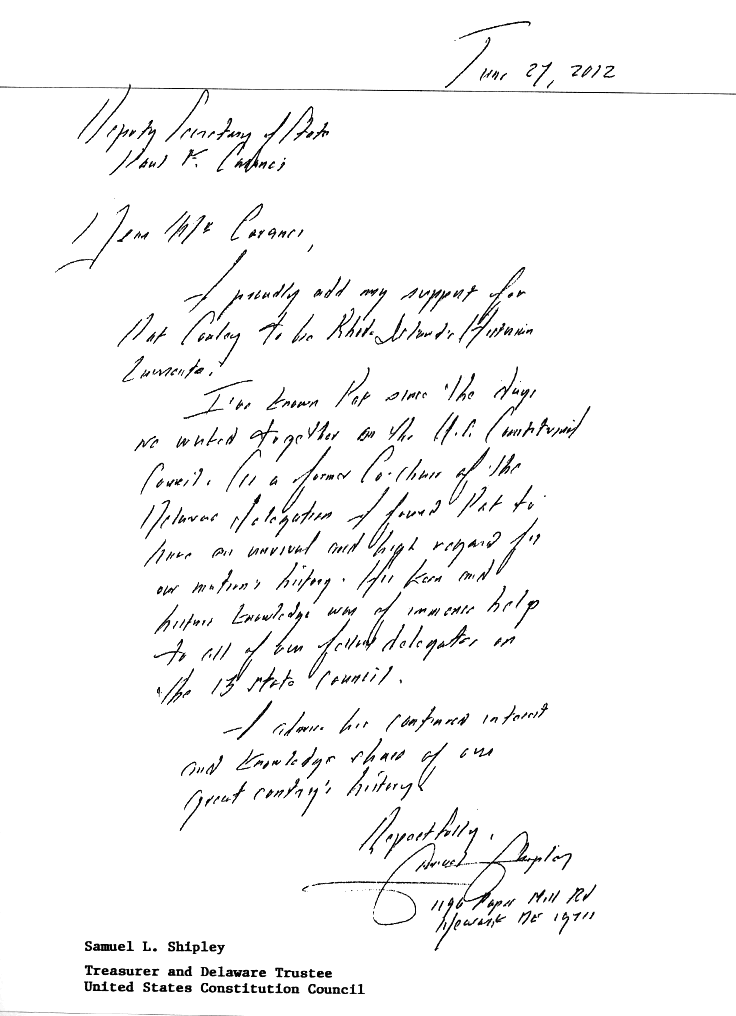 June 27, 2012
Deputy Secretary of State
Paul F. Caranci
Dear Mr Caranci,
I proudly add my support for
Pat Conley to be Rhode Island's Historian
Laureate.
I've known Pat since the days
we worked together on the U.S. Constitution
Council. As a former Co-chair of the
Delaware delegation I found Pat to
have an unusual and high regard for
our nation's history. His keen and
historic knowledge was of immense help
to all of our fellow delegates on
the 13 state council.
I admire his continued interest
and knowledge shared of our
great contry's history.
Respectfully,
Samuel Shipley
1190 Paper Mill Rd
Newark DE 19711
Samuel L. Shipley
Treasurer and Delaware Trustee
United States Constitution Council